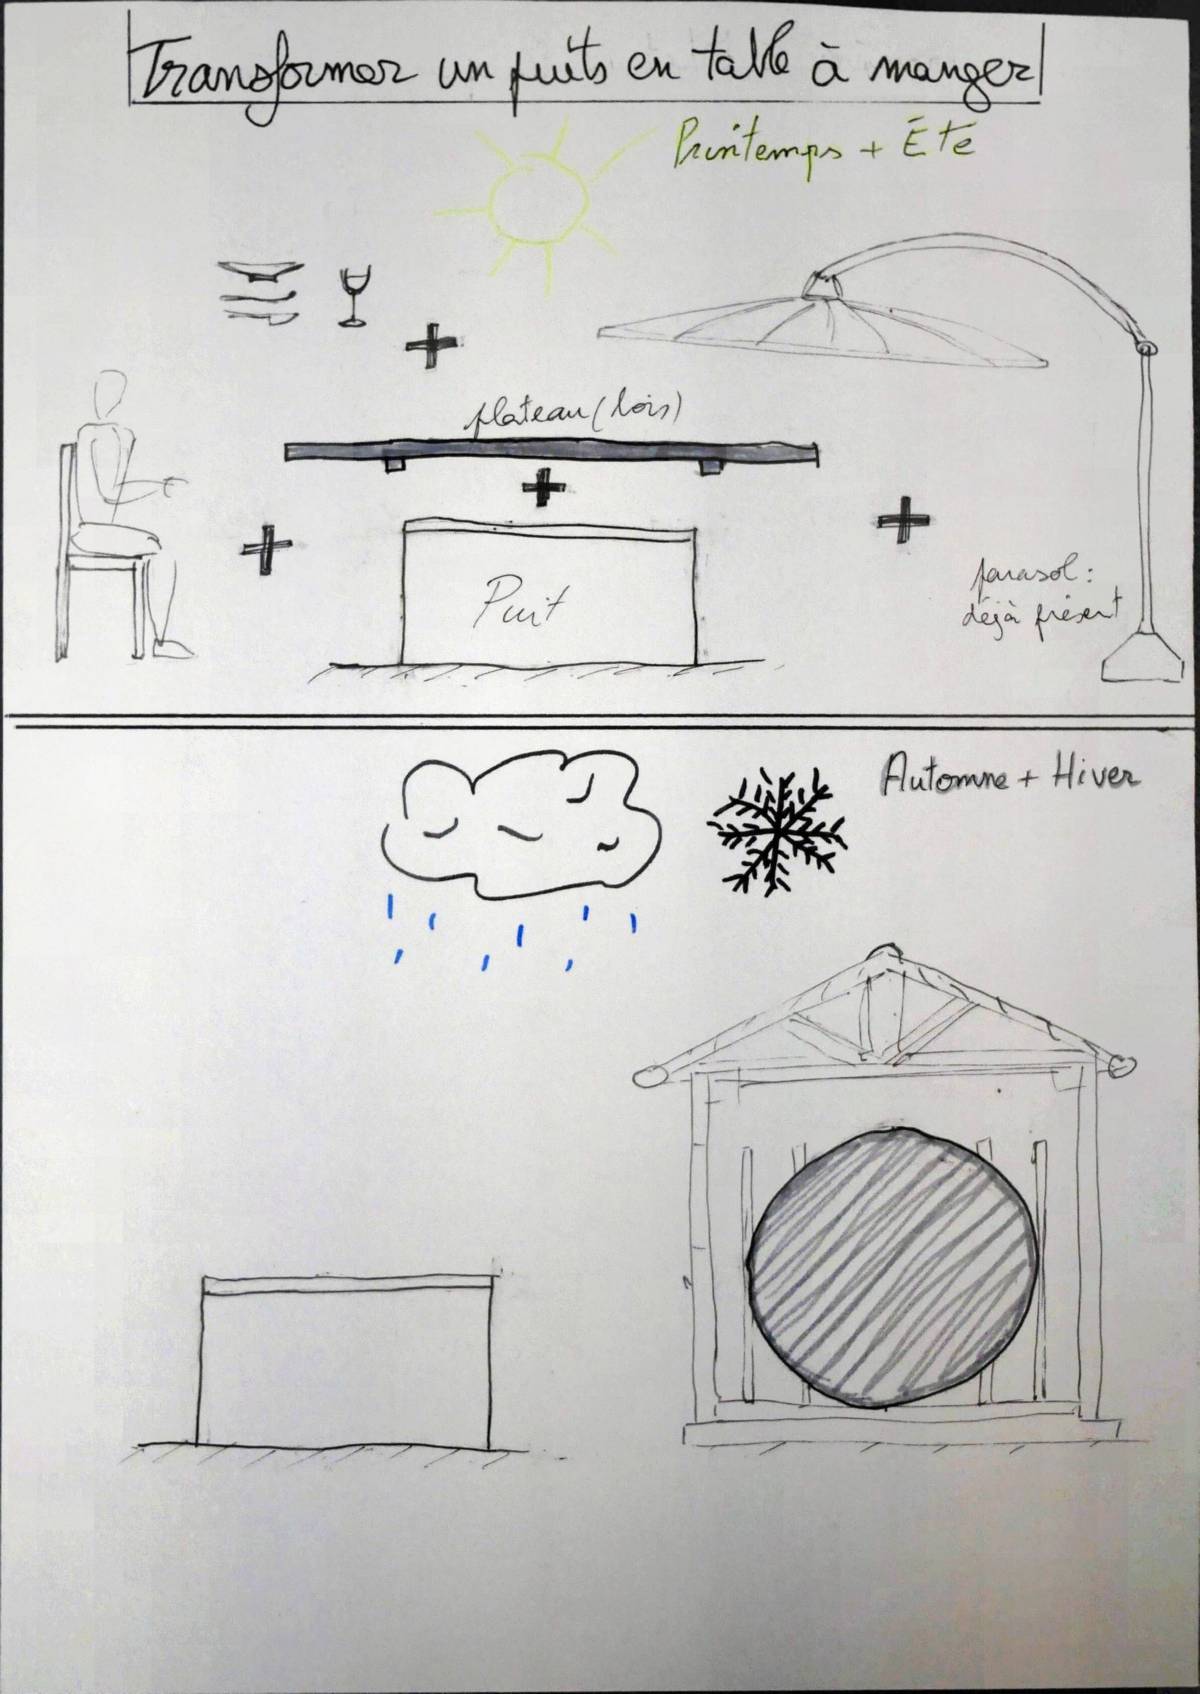 Transformer un puits en table à manger
Printemps + Été
plateau (bois)
Puit
parasol :
déjà présent
Automne + Hiver